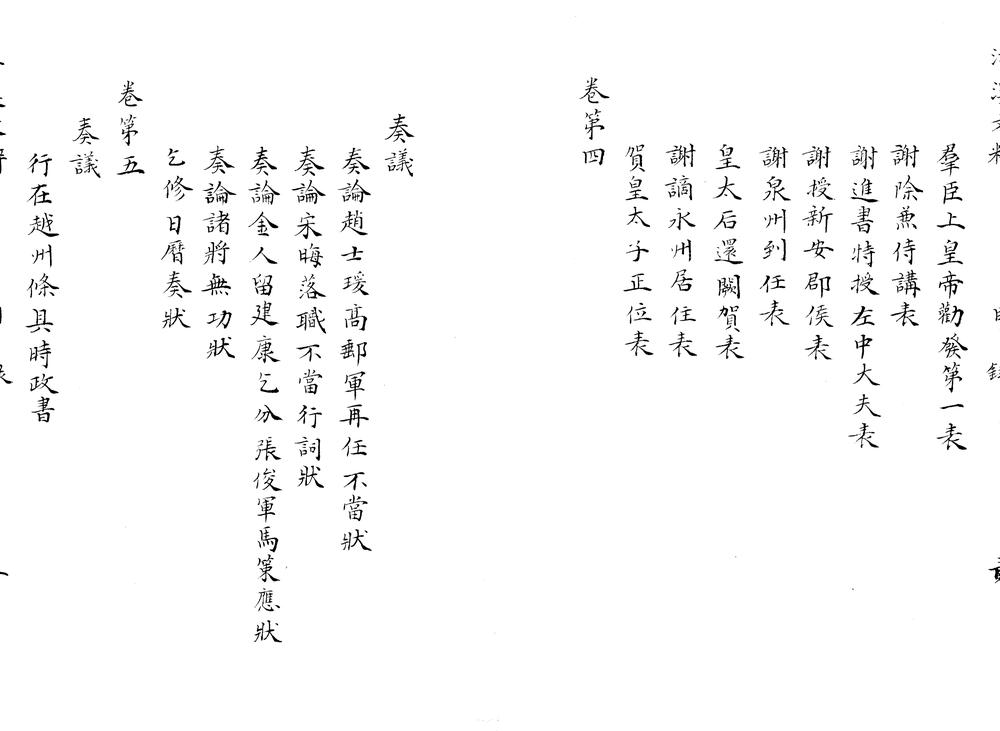 羣臣上皇帝勸發第一表
謝除兼侍講表
謝進書特授左中大夫表
謝授新安郡侯表
謝泉州到任表
皇太后還闕賀表
謝謫永州居住表
賀皇太子正位表
卷第四
奏議
奏論趙士瑗高郵軍再任不當狀
奏論宋晦落職不當行詞狀
奏論金人留建康乞分張俊軍馬策應狀
奏論諸將無功狀
乞修日曆奏狀
卷第五
奏議
行在越州條具時政書